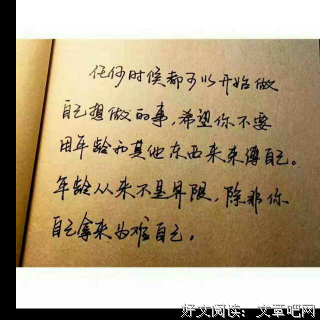 任何时候都可以开始做
自己想做的事,希望你不要
用年龄和其他东西来束缚自己。
年龄从来不是界限,除非你
自己拿来为难自己。
好文阅读:文章吧网